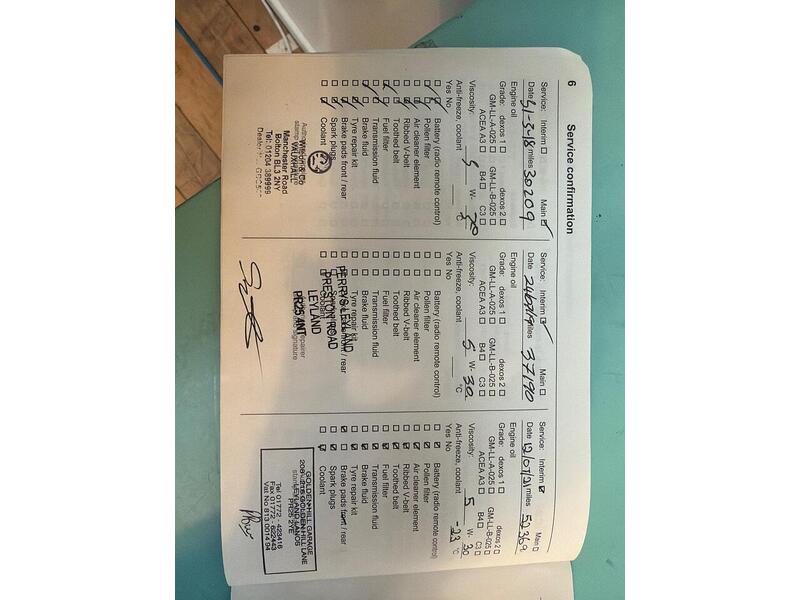 6 Service confirmation
Service: Interim ☐ Main ☑
Date 31-5-18 miles 30209
Engine oil
Grade: dexos 1 ☐ dexos 2 ☐
GM-LL-A-025 ☐ GM-LL-B-025 ☐
ACEA A3 ☐ B4 ☐ C3 ☐
Viscosity: 5 W-
Anti-freeze, coolant °C
Yes No
Battery (radio remote control)
Pollen filter
Air cleaner element
Ribbed V-belt
Toothed belt
Fuel filter
Transmission fluid
Brake fluid
Tyre repair kit
Brake pads front / rear
Spark plugs
Coolant
VAUXHALL
Manchester Road
Bolton BL3 2NY
Tel: 01204 389999
Service: Interim ☑ Main ☐
Date miles 37190
Engine oil
Grade: dexos 1 ☐ dexos 2 ☐
GM-LL-A-025 ☐ GM-LL-B-025 ☐
ACEA A3 ☐ B4 ☐ C3 ☐
Viscosity: 5 W- 30
Anti-freeze, coolant °C
Yes No
Battery (radio remote control)
Pollen filter
Air cleaner element
Ribbed V-belt
Toothed belt
Fuel filter
Transmission fluid
Brake fluid
Tyre repair kit
Brake pads front / rear
Spark plugs
Coolant
PERRYS LEYLAND
PRESTON ROAD
LEYLAND
PR25 4NT
Service: Interim ☑ Main ☐
Date 12/07/21 miles 52369
Engine oil
Grade: dexos 1 ☐ dexos 2 ☐
GM-LL-A-025 ☐ GM-LL-B-025 ☐
ACEA A3 ☐ B4 ☐ C3 ☐
Viscosity: 5 W- 30
Anti-freeze, coolant -23 °C
Yes No
Battery (radio remote control)
Pollen filter
Air cleaner element
Ribbed V-belt
Toothed belt
Fuel filter
Transmission fluid
Brake fluid
Tyre repair kit
Brake pads front / rear
Spark plugs
Coolant
GOLDEN HILL GARAGE
GOLDEN HILL LANE
LEYLAND LANCS
PR25 2YE
Tel 01772 - 423416
Fax 01772 - 622443
Vat No 813 0014 94